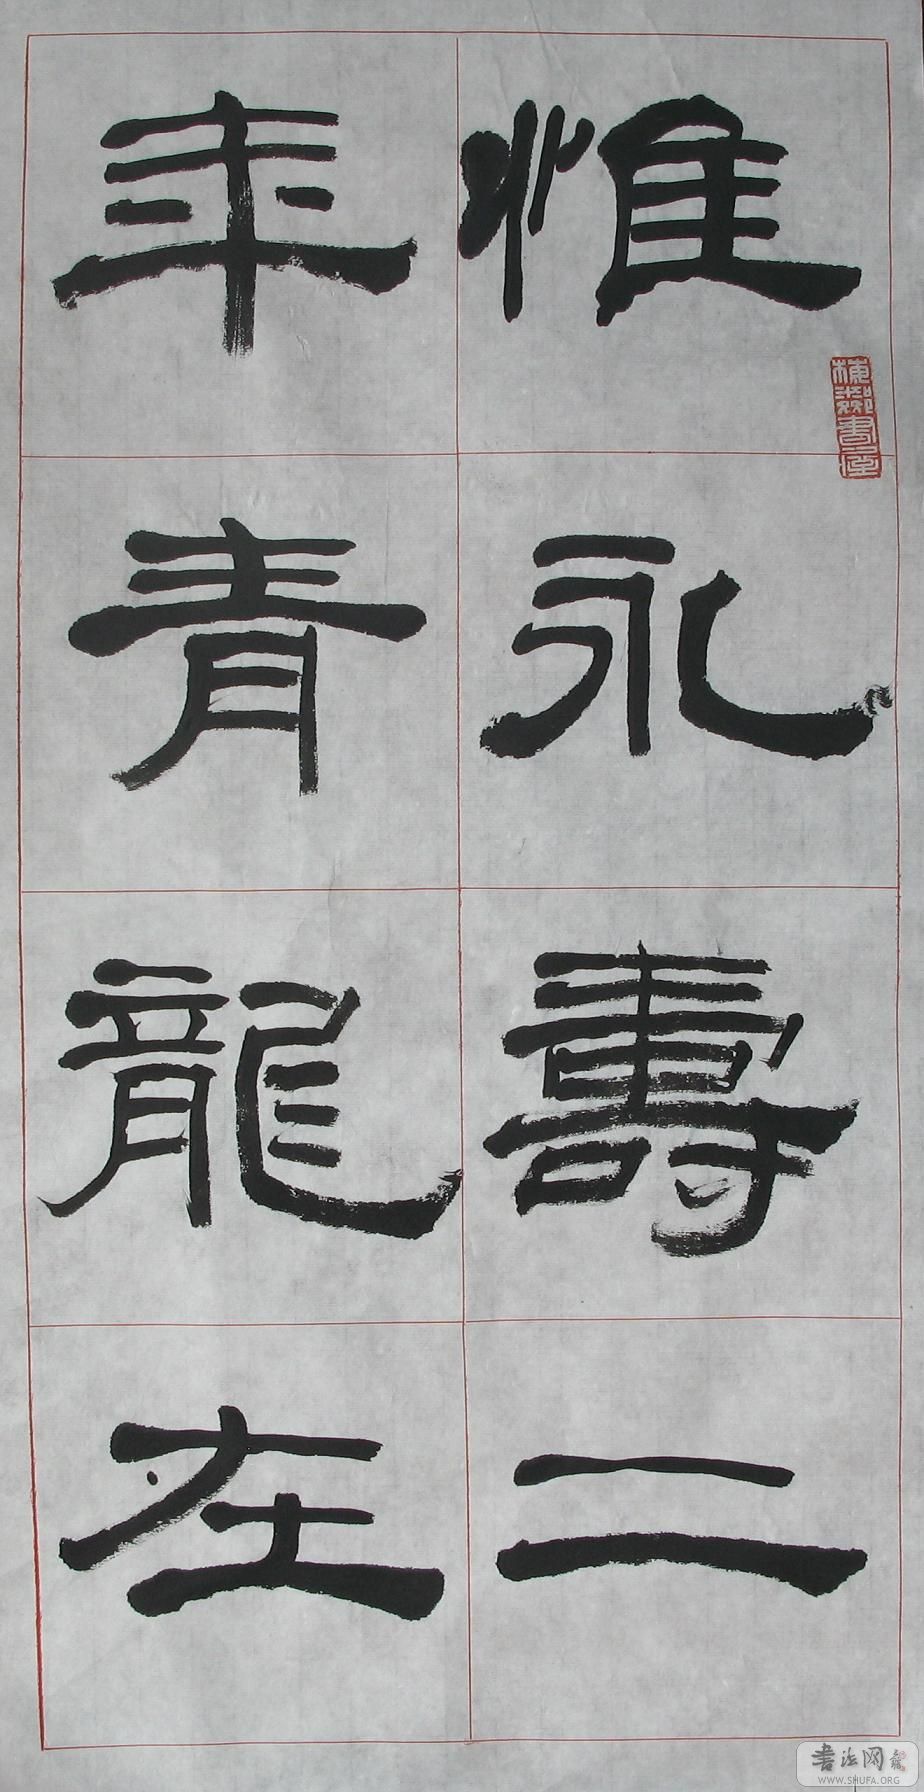 惟永壽二
年青龍在
書法网
WWW.SHUFA.ORG